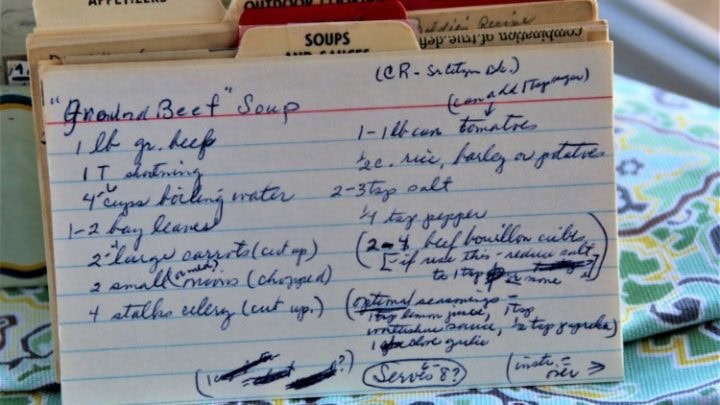 APPETIZERS
OUTDOOR
SOUPS
AND SAUCES
Recipe
combination of true, defi
(CR - Sr Citzn Bk.)
(can add 1 tsp sugar)
"Ground Beef" Soup
1 lb gr. beef
1 T shortening
4 cups boiling water
1-2 bay leaves
2 large carrots (cut up)
2 small (or med) onions (chopped)
4 stalks celery (cut up.)
1 - 1 lb can tomatoes
1/2 c. rice, barley or potatoes
2-3 tsp salt
1/4 tsp pepper
(2-4 beef bouillon cubes
[-if use this - reduce salt
to 1 tsp or none])
(optional seasonings =
1 tsp lemon juice, 1 tsp
worcestshire sauce, 1/2 tsp paprika)
1 clove garlic
Serves 6-8?
(instr. =
over →